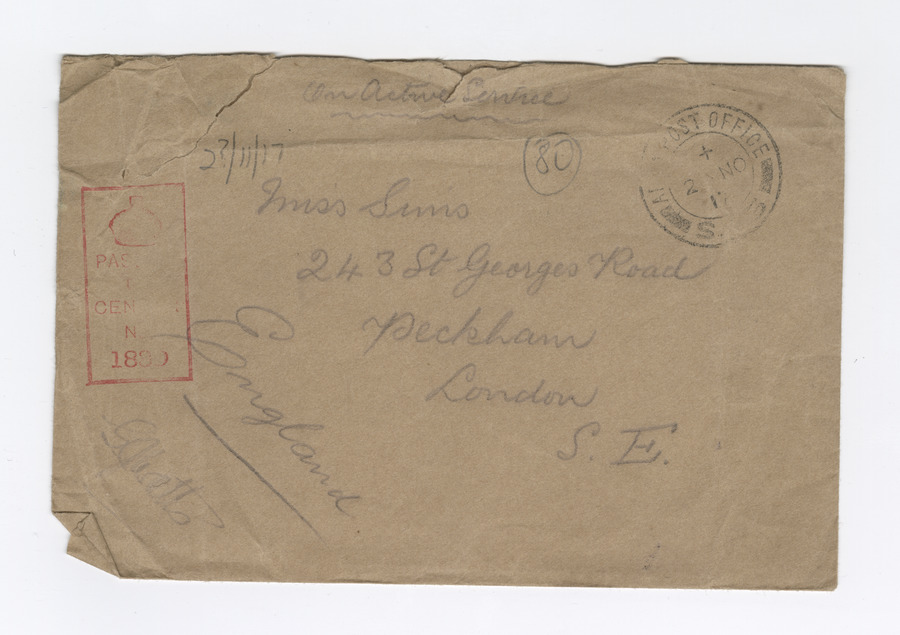 On Active Service
23/11/17
80
POST OFFICE
NO
S.
Miss Sims
243 St Georges Road
Peckham
London
S. E.
England
PAS
T
CEN
N
1880